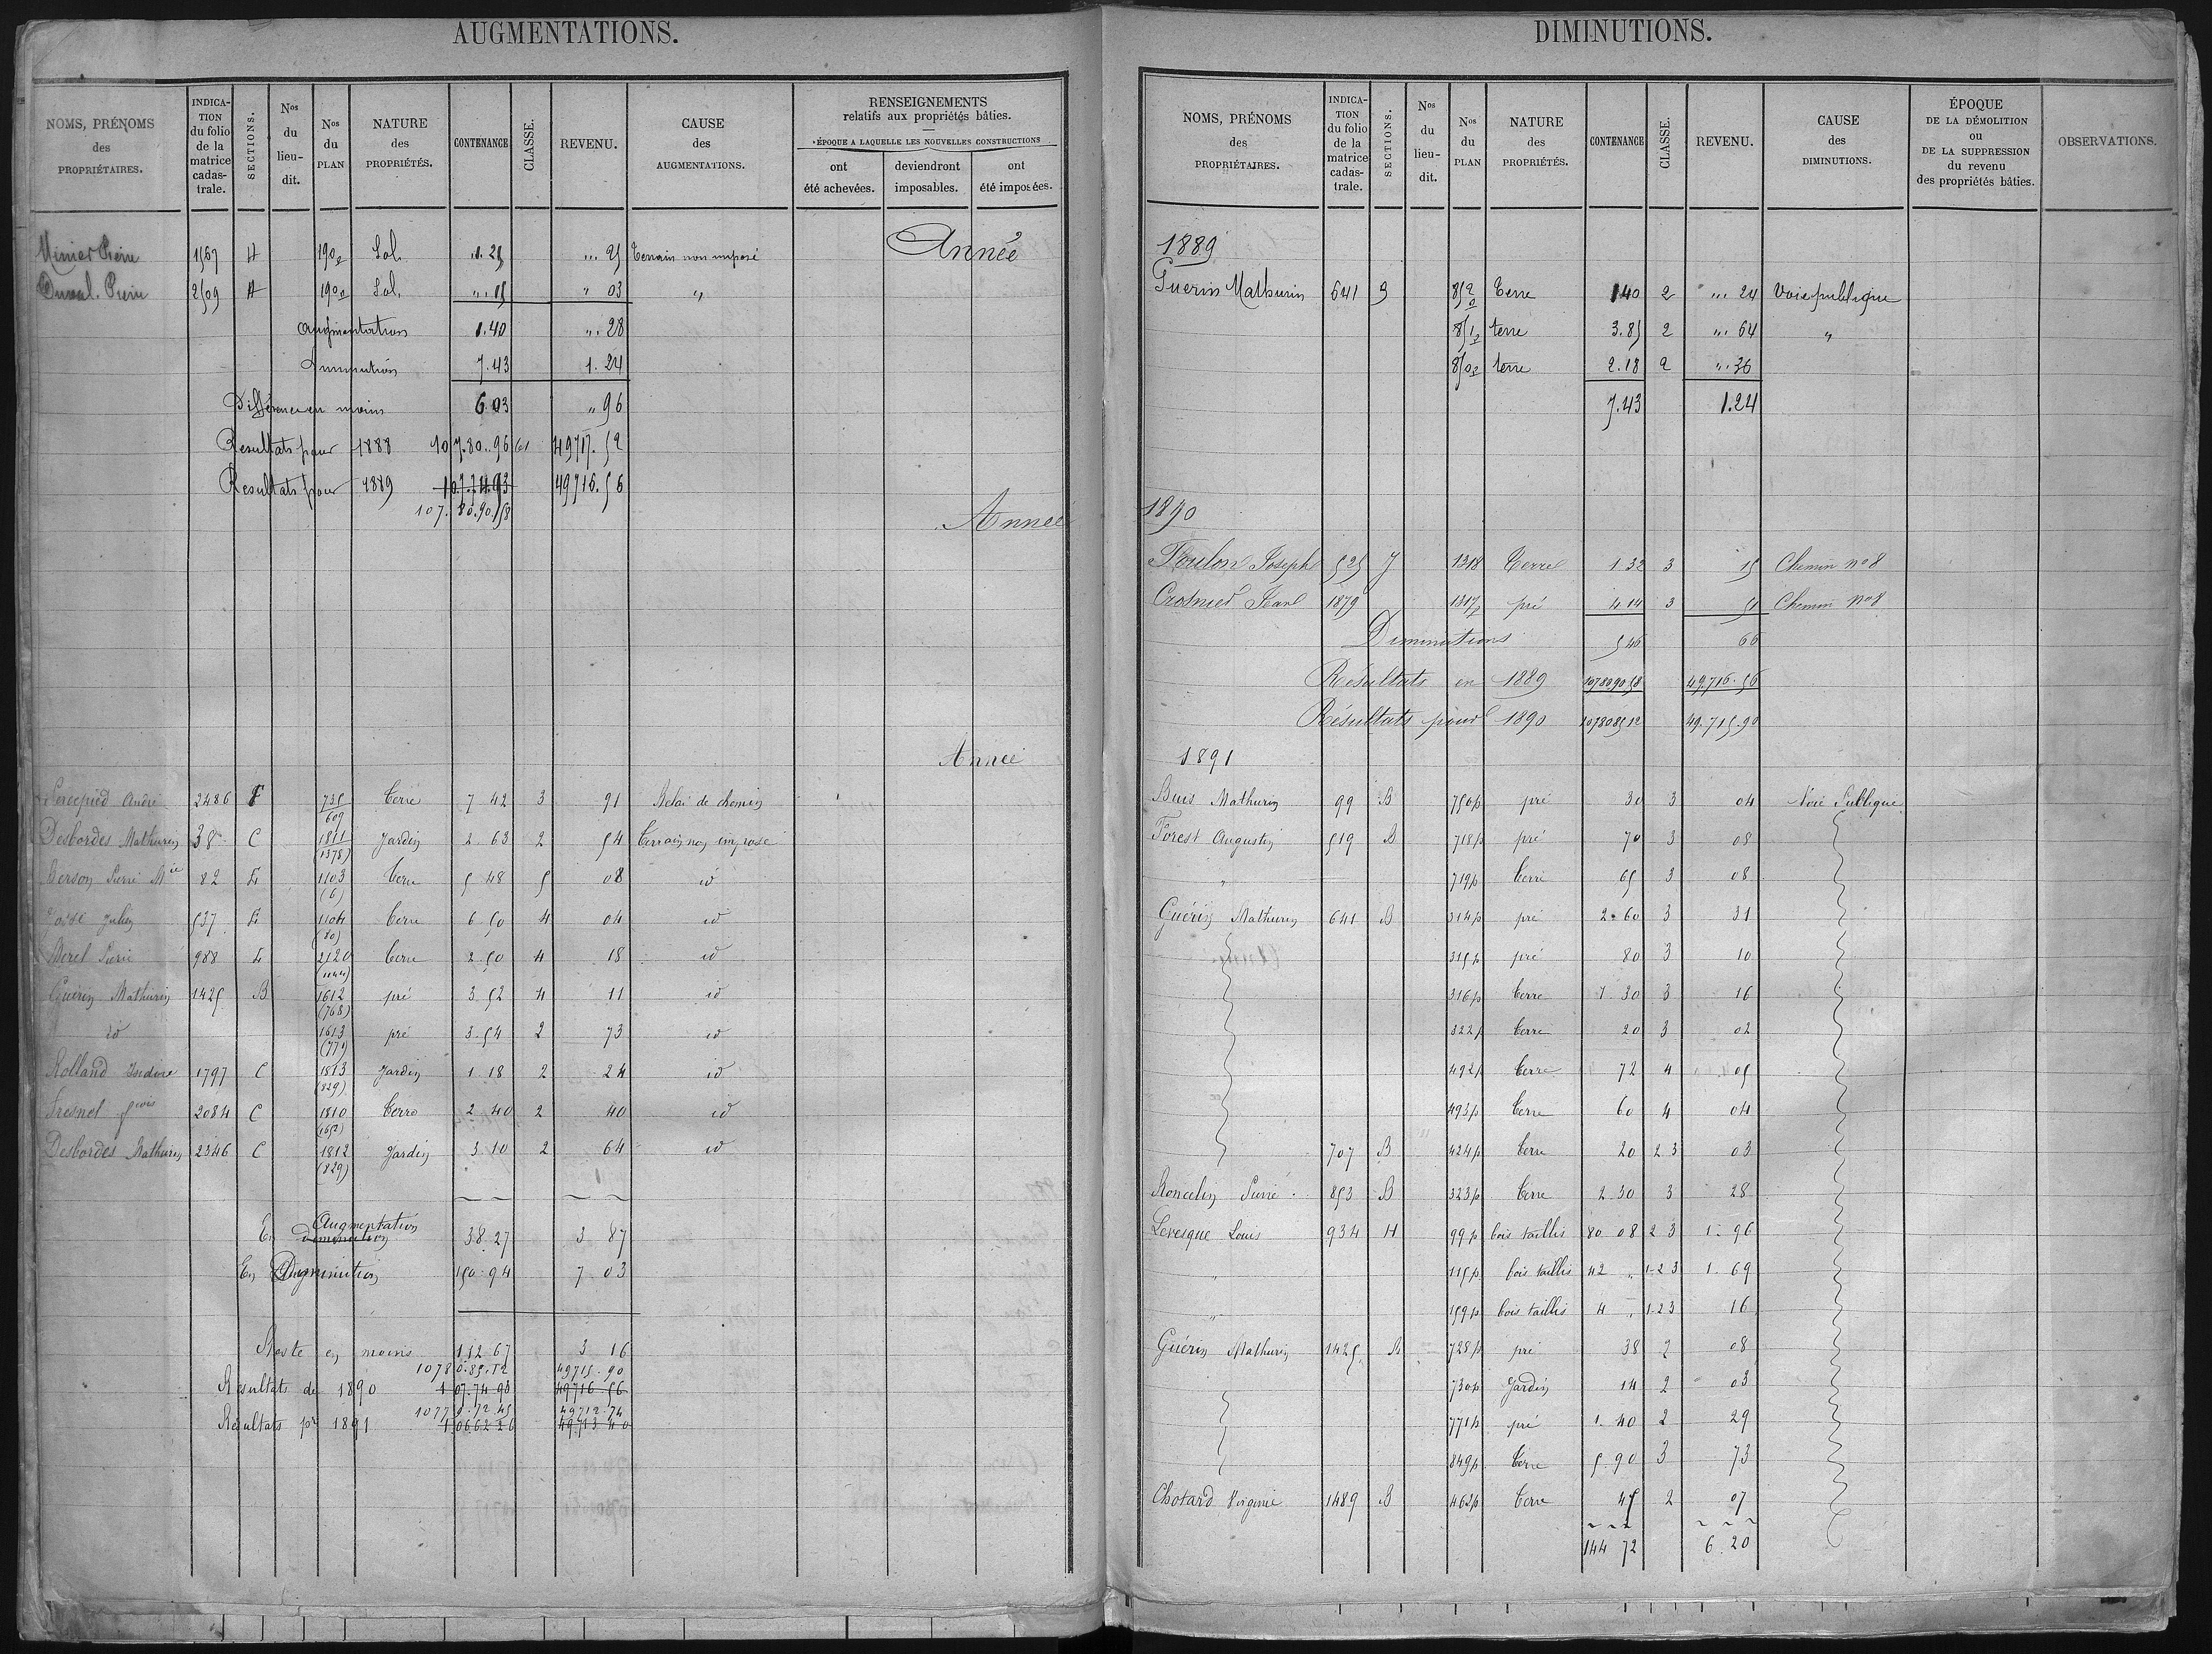 AUGMENTATIONS.
NOMS, PRÉNOMS des PROPRIÉTAIRES.
INDICATION du folio de la matrice cadastrale.
SECTIONS.
Nos du lieu-dit.
Nos du PLAN
NATURE des PROPRIÉTÉS.
CONTENANCE
CLASSE.
REVENU.
CAUSE des AUGMENTATIONS.
RENSEIGNEMENTS relatifs aux propriétés bâties.
ÉPOQUE A LAQUELLE LES NOUVELLES CONSTRUCTIONS
ont été achevées.
deviendront imposables.
ont été imposées.
Année
Pierre 1567 H 190p Sol. 1.25 " 25 Terrain non imposé
Duval Pierre 2509 H 190p Sol. " 15 " 03 "
Augmentation 1.40 " 28
Diminution 7.43 1.24
Différence en moins 6.03 " 96
Résultats pour 1888 107.80.96 61 49717.52
Résultats pour 1889 107.74.93 49716.56
107.80.90.58
Année
Année
Percepied André 2486 F 735 609 Terre 7 42 3 91 Relai de chemin
Desbordes Mathurin 38 C 1811 (1378) Jardin 2 63 2 54 Terrain non imposé
Berson Pierre Mie 82 E 1103 (6) Terre 5 48 5 08 id
Julien 537 E 1104 (80) Terre 6 50 4 04 id
Merel Pierre 988 E 2120 (1044) Terre 2 50 4 18 id
Guérin Mathurin 1425 B 1612 (768) pré 3 52 4 11 id
id 1613 (771) pré 3.54 2 73 id
Rolland Isidore 1797 C 1813 (829) Jardin 1 18 2 24 id
Fresnel 2084 C 1810 (1652) Terre 2 40 2 40 id
Desbordes Mathurin 2346 C 1812 (829) Jardin 3 10 2 64 id
Augmentation
En diminution 38 27 3 87
En Diminution 150 94 7 03
Reste en moins 112 67 3 16
10780.85.12 49715.90
Résultats de 1890 107.74 93 49716 56
10779.72.45 49712.74
Résultats pr 1891 106 62 26 49713 40
DIMINUTIONS.
NOMS, PRÉNOMS des PROPRIÉTAIRES.
INDICATION du folio de la matrice cadastrale.
SECTIONS.
Nos du lieu-dit.
Nos du PLAN
NATURE des PROPRIÉTÉS.
CONTENANCE
CLASSE.
REVENU.
CAUSE des DIMINUTIONS.
ÉPOQUE DE LA DÉMOLITION ou DE LA SUPPRESSION du revenu des propriétés bâties.
OBSERVATIONS.
1889
Guerin Mathurin 641 852p Terre 1 40 2 " 24 Voie publique
851p terre 3.85 2 " 64 "
850p terre 2.18 2 " 36
7.43 1.24
1890
Foulon Joseph 525 J 1318 Terre 1 32 3 15 Chemin no 8
Crosnier Jean 1879 1317p pré 4 14 3 51 Chemin no 8
Diminutions 5 46 66
Résultats en 1889 10780.90 58 49.716.56
Résultats pour 1890 1078085 12 49.715.90
1891
Buis Mathurin 99 B 750p pré 30 3 04 Voie Publique
Forest Augustin 519 B 718p pré 70 3 08
" 719p Terre 65 3 08
Guérin Mathurin 641 B 314p pré 2.60 3 31
315p pré 80 3 10
316p Terre 1 30 3 16
322p Terre 20 3 02
492p Terre 72 4 05
493p Terre 60 4 04
707 B 424p Terre 20 2 3 03
Roncelin Pierre 853 B 323p Terre 2 30 3 28
Levesque Louis 934 H 99p bois taillis 80 08 2 3 1.96
" 115p bois taillis 42 " 1-2 3 1.69
" 159p bois taillis 4 " 1-2 3 16
Guérin Mathurin 1425 B 728p pré 38 2 08
730p Jardin 14 2 03
771p pré 1.40 2 29
849p Terre 5.90 3 73
Chotard Virginie 1489 B 462p Terre 45 2 07
144 72 6.20